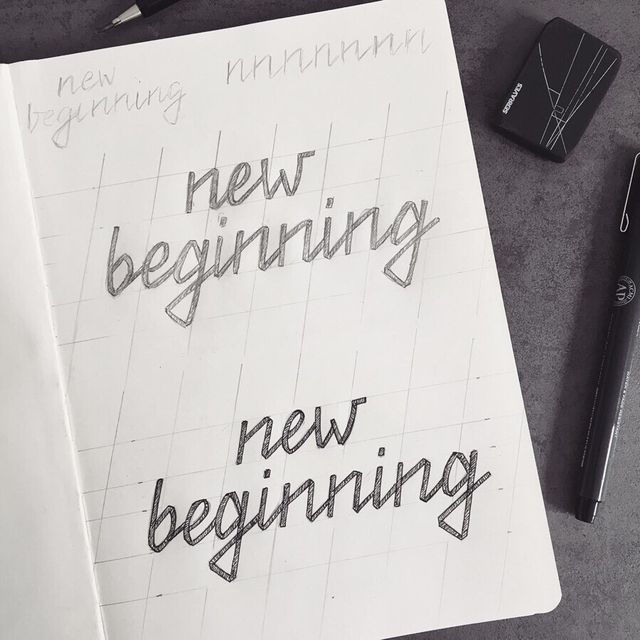 new
beginning
nnnnnnn
new
beginning
new
beginning
SERRALVES